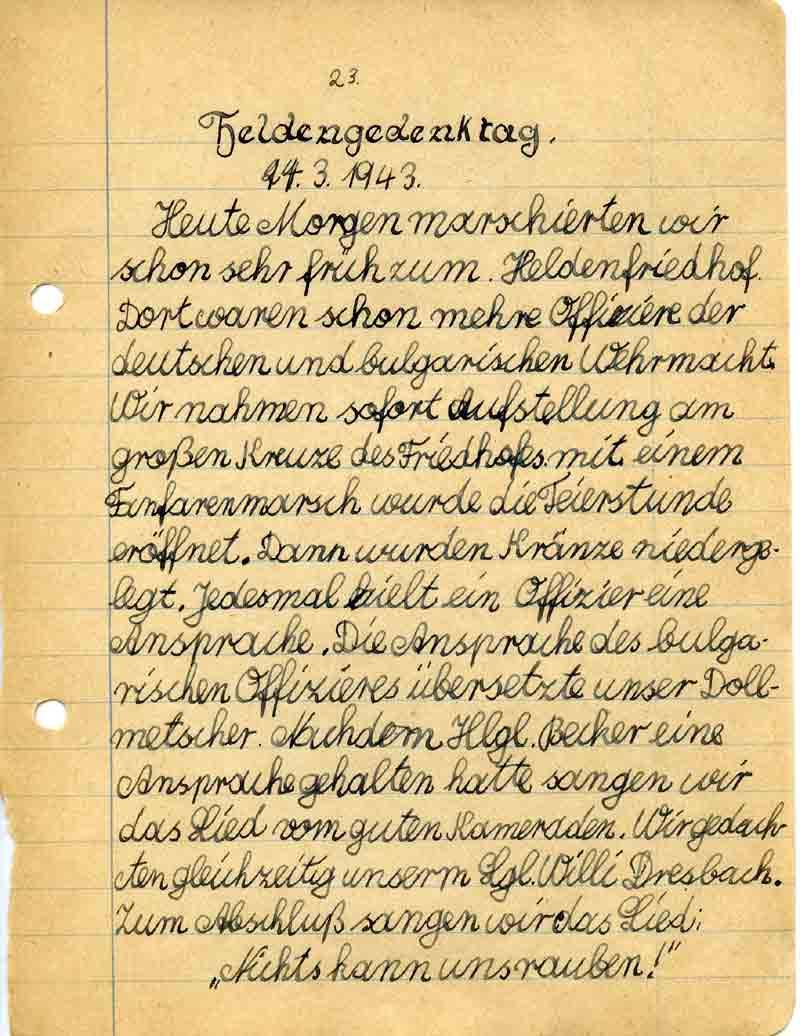 23.
Heldengedenktag.
24. 3. 1943.
Heute Morgen marschierten wir
schon sehr früh zum Heldenfriedhof.
Dort waren schon mehre Offiziere der
deutschen und bulgarischen Wehrmacht.
Wir nahmen sofort Aufstellung am
großen Kreuze des Friedhofes. mit einem
Fanfarenmarsch wurde die Feierstunde
eröffnet. Dann wurden Kränze niederge-
legt. Jedesmal hielt ein Offizier eine
Ansprache. Die Ansprache des bulga-
rischen Offizieres übersetzte unser Doll-
metscher. Nachdem Hlgl. Becker eine
Ansprache gehalten hatte sangen wir
das Lied vom guten Kameraden. Wir gedach-
ten gleichzeitig unserm Lgl. Willi Dresbach.
Zum Abschluß sangen wir das Lied:
„Nichts kann uns rauben!"